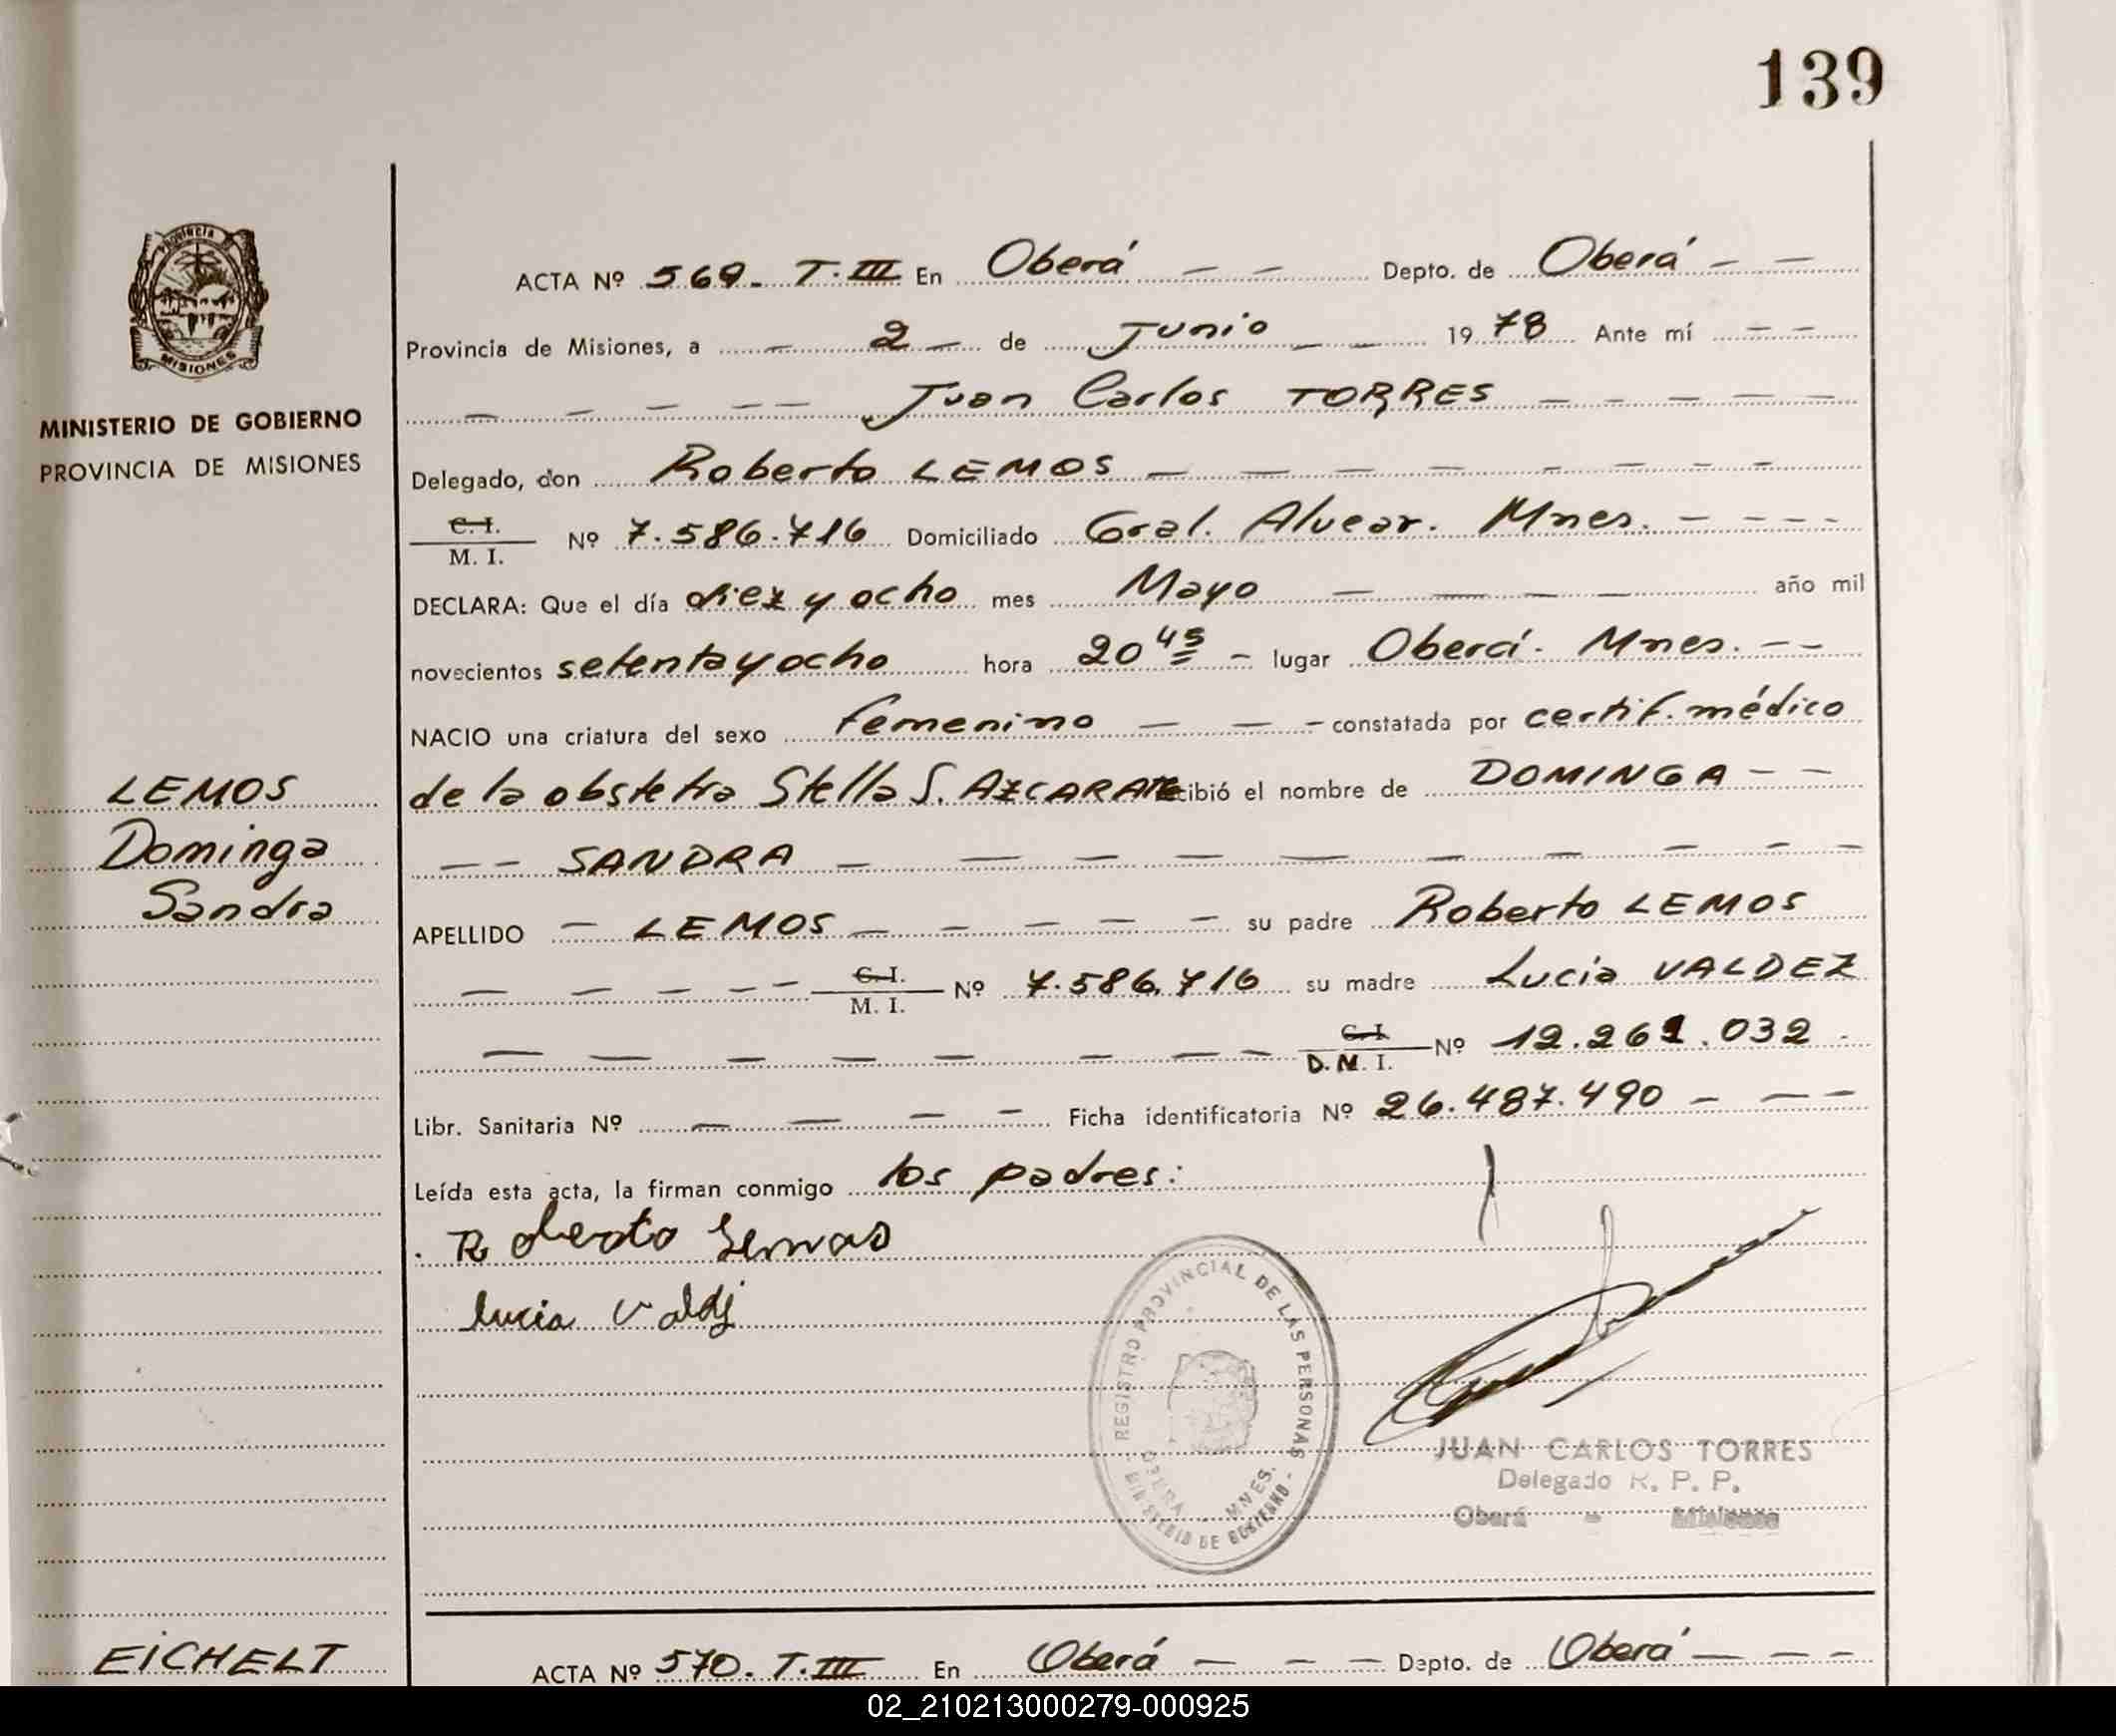 139
Provincia
MISIONES
MINISTERIO DE GOBIERNO
PROVINCIA DE MISIONES
ACTA Nº 569. T. III En Oberá Depto. de Oberá
Provincia de Misiones, a 2 de Junio 1978 Ante mí
Juan Carlos TORRES
Delegado, don Roberto LEMOS
C. I.
M. I. Nº 7.586.716 Domiciliado Gral. Alvear. Mnes.
DECLARA: Que el día diez y ocho mes Mayo año mil
novecientos setenta y ocho hora 20 45 lugar Oberá. Mnes.
NACIO una criatura del sexo femenino constatada por certif. médico
de la obstetra Stella S. AZCARATE recibió el nombre de DOMINGA
SANDRA
LEMOS
Dominga
Sandra
APELLIDO LEMOS su padre Roberto LEMOS
C. I.
M. I. Nº 7.586.716 su madre Lucia VALDEZ
C. I.
D. M. I. Nº 12.261.032
Libr. Sanitaria Nº Ficha identificatoria Nº 26.487.490
Leída esta acta, la firman conmigo los padres:
Roberto Lemos
lucia Valdz
REGISTRO PROVINCIAL DE LAS PERSONAS
OBERA MNES.
MINISTERIO DE GOBIERNO
JUAN CARLOS TORRES
Delegado R. P. P.
Oberá - Misiones
EICHELT
ACTA Nº 570. T. III En Oberá Depto. de Oberá
02_210213000279-000925